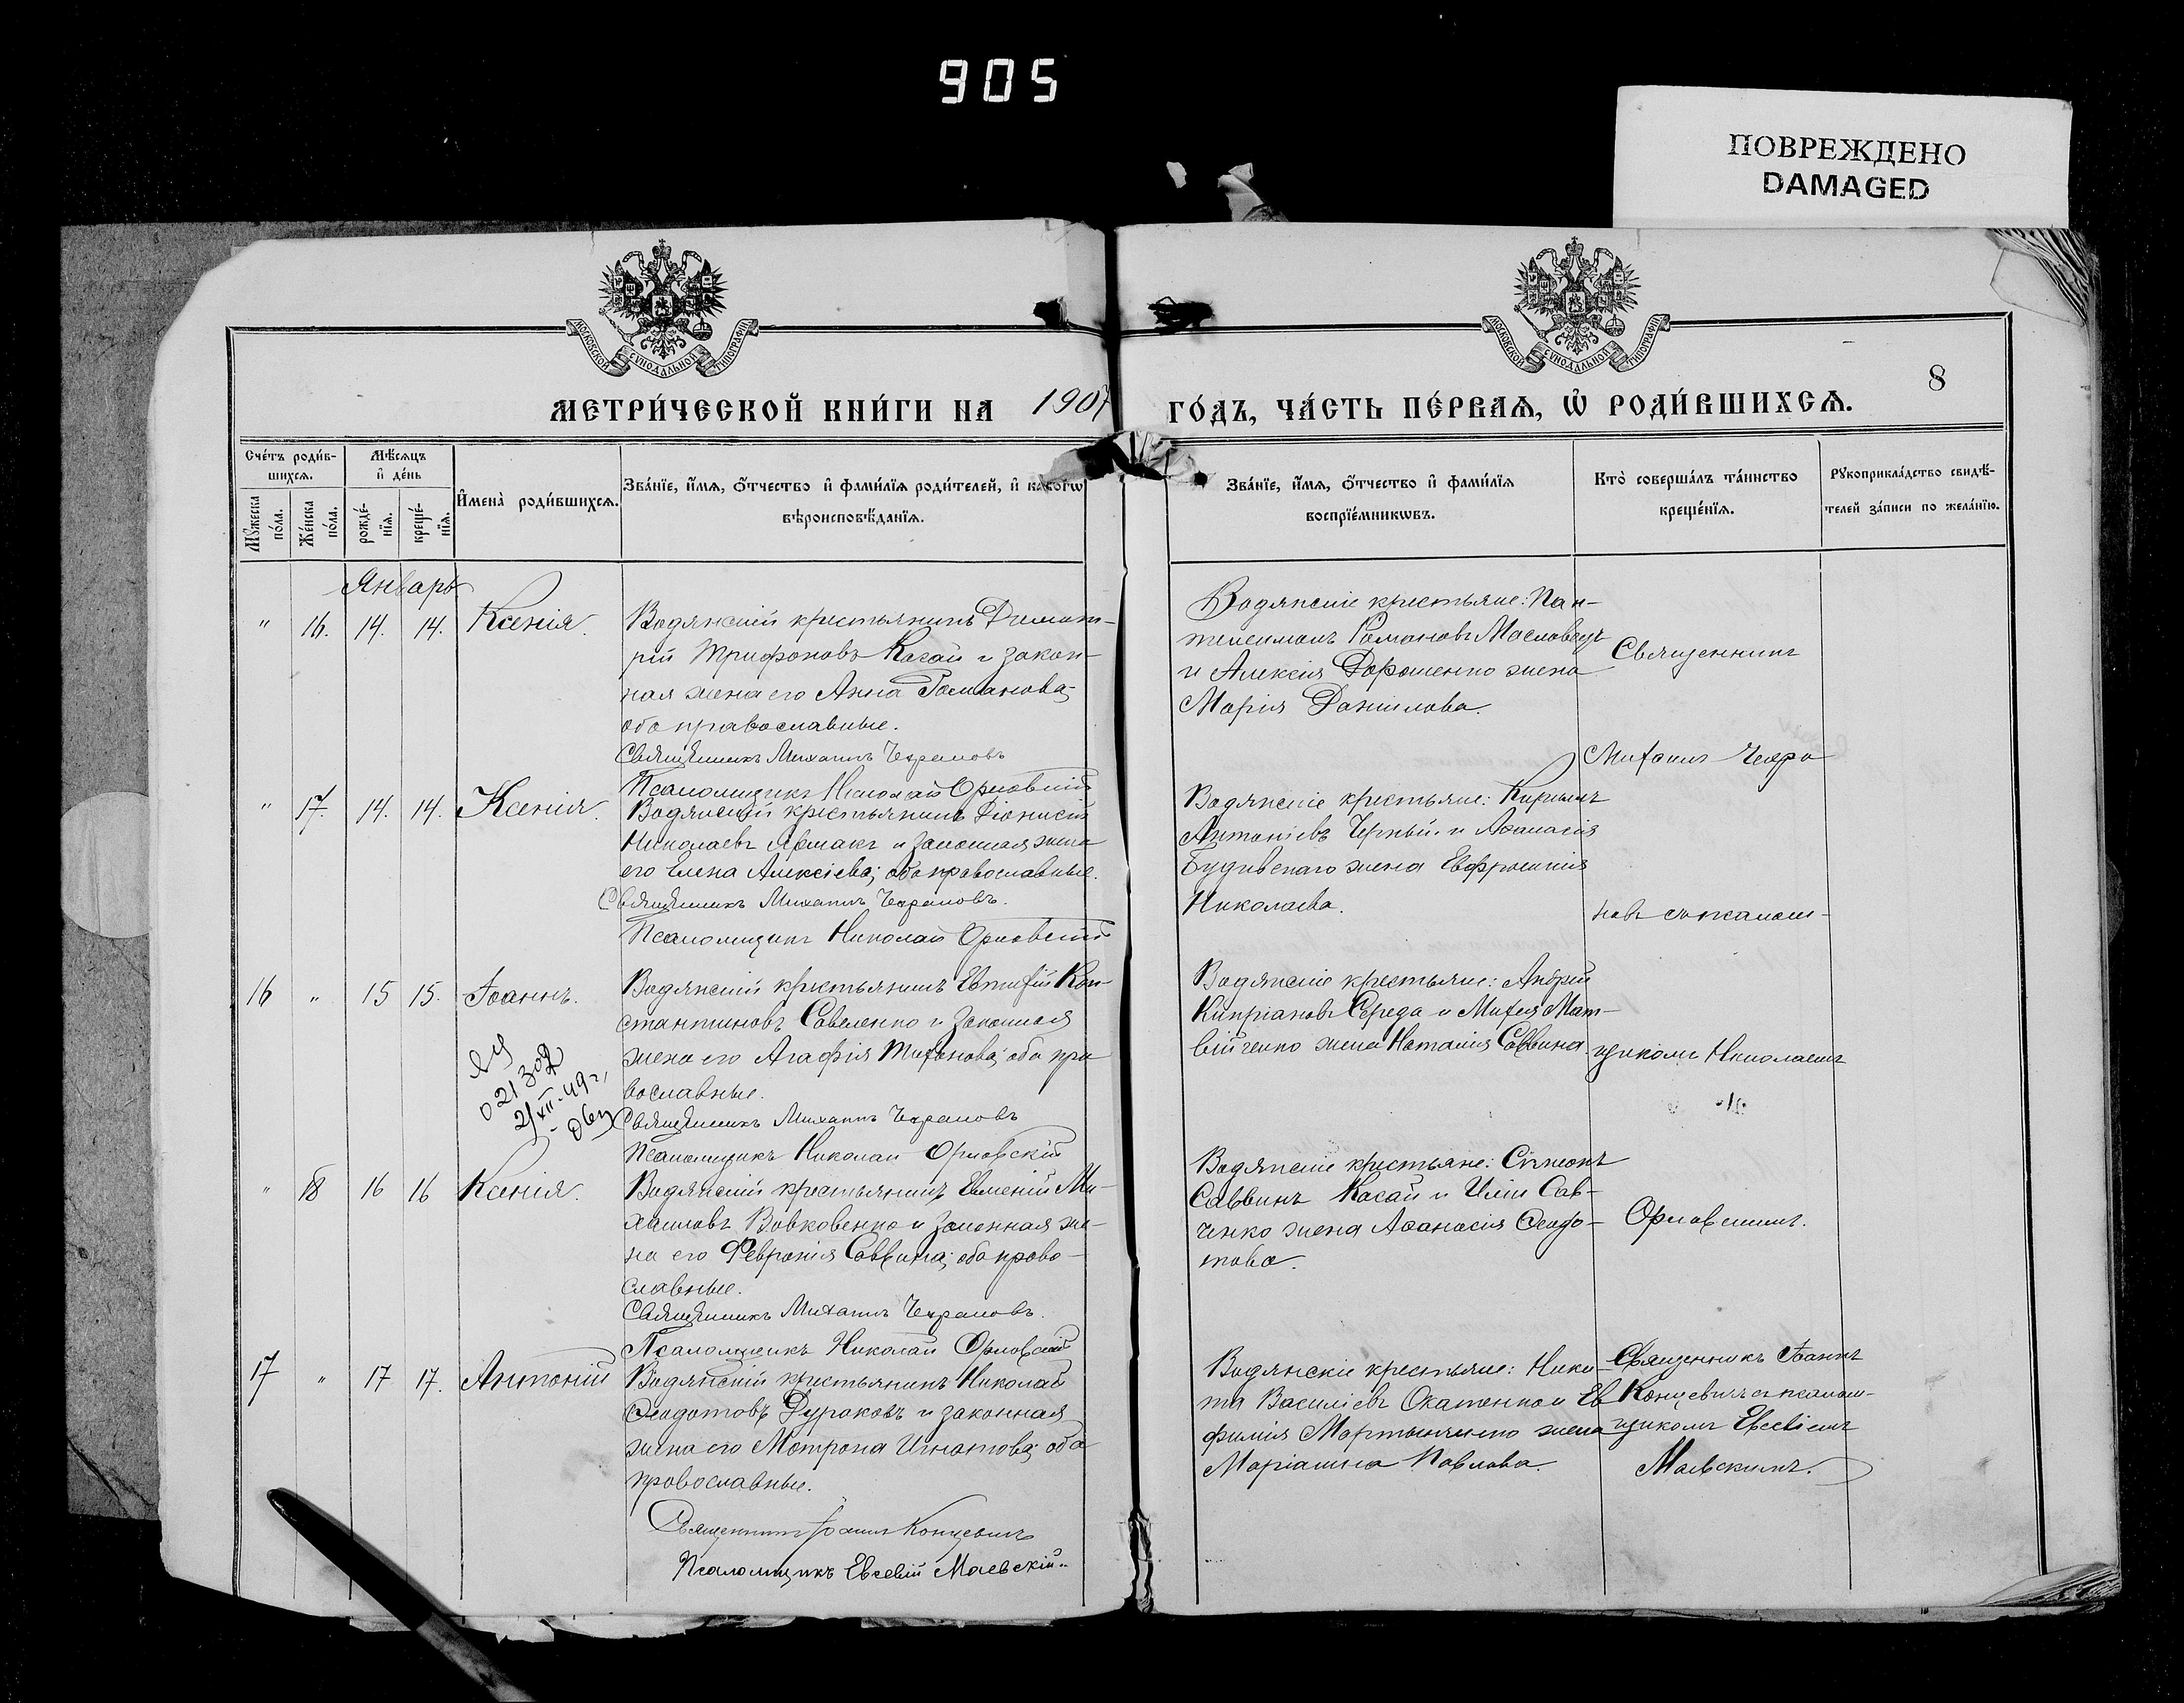 905
ПОВРЕЖДЕНО
DAMAGED
МОСКОВСКОЙ СѴНОДАЛЬНОЙ ТИПОГРАФІИ
МОСКОВСКОЙ СѴНОДАЛЬНОЙ ТИПОГРАФІИ
8
МЕТРИ́ЧЕСКОЙ КНИ́ГИ НА 1907
ГО́ДЪ, ЧА́СТЬ ПЕ́РВАѦ, Ѡ҆ РОДИ́ВШИХСѦ.
Сче́тъ роди́в-
шихсѧ.
Мꙋ́жеска
по́ла.
Же́нска
по́ла.
Мѣ́сѧцъ
и҆ де́нь
рожде́-
нїѧ.
креще́-
нїѧ.
И҆мена̀ роди́вшихсѧ.
Зва́нїе, и҆́мѧ, ѻ҆́тчество и҆ фами́лїѧ роди́телей, и҆ како́гѡ
вѣроисповѣ́данїѧ.
Зва́нїе, и҆́мѧ, ѻ҆́тчество и҆ фами́лїѧ
воспрїе́мникѡвъ.
Кто̀ соверша́лъ та́инство
креще́нїѧ.
Рꙋкоприкла́дство свидѣ́-
телей за́писи по жела́нїю.
Январь
" 16. 14. 14. Ксенія.
Водянскій крестьянинъ Димит-
рій Трифоновъ Касай и закон-
ная жена его Анна Романова;
оба православные.
Священникъ Михаилъ Чехрановъ
Псаломщикъ Николай Орловскій
Водянскіе крестьяне: Пан-
телеимонъ Романовъ Масловецъ
и Алексія Дорошенко жена
Марія Даніилова.
Священникъ
Михаилъ Чехра-
" 17. 14. 14. Ксенія.
Водянскій крестьянинъ Діонисій
Николаевъ Ярмакъ и законная жена
его Елена Алексіева; оба православные.
Священникъ Михаилъ Чехрановъ.
Псаломщикъ Николай Орловскій
Водянскіе крестьяне: Кириллъ
Антоніевъ Черный и Аѳанасія
жена Евфросинія
Николаева.
новъ съ псалом-
16 " 15 15. Іоаннъ.
ЯЯ
21/XII-49 г.
Водянскій крестьянинъ Евтихій Кон-
стантиновъ Савеленко и законная
жена его Агафія Тихонова; оба пра-
вославные.
Священникъ Михаилъ Чехрановъ
Псаломщикъ Николай Орловскій
Водянскіе крестьяне: Андрей
Кипріановъ Середа и Михея Мат-
війченко жена Наталія Саввина.
щикомъ Николаемъ
" 18 16 16 Ксенія.
Водянскій крестьянинъ Евменій Ми-
хаиловъ Вовковенко и законная же-
на его Февронія Саввина; оба право-
славные.
Священникъ Михаилъ Чехрановъ.
Псаломщикъ Николай Орловскій
Водянскіе крестьяне: Сѵмеонъ
Саввинъ Касай и Иліи Сав-
ченко жена Аѳанасія Ѳеодо-
това.
Орловскимъ.
17 " 17 17. Антоній
Водянскій крестьянинъ Николай
Ѳеодотовъ Дураковъ и законная
жена его Матрона Игнатова; оба
православные.
Священникъ Іоаннъ Концевичъ
Псаломщикъ Евсевій Маевскій.
Водянскіе крестьяне: Ники-
та Василіевъ Окатенко и Ев-
фимія Мартыненко жена
Маріамна Павлова.
Священникъ Іоаннъ
Концевичъ съ псалом-
щикомъ Евсевіемъ
Маевскимъ.